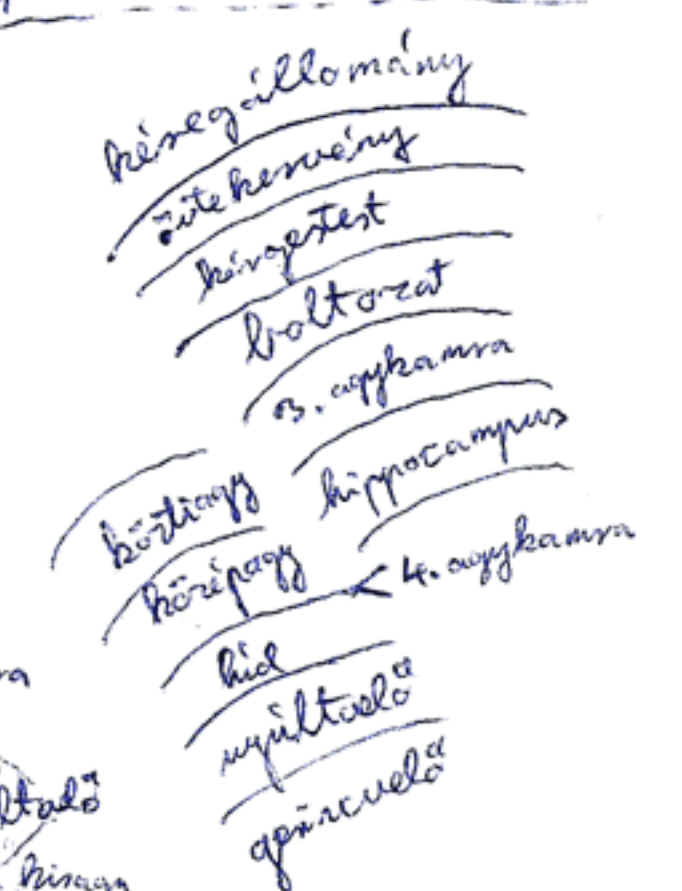 kéregállomány
övtekervény
kérgestest
boltozat
3. agykamra
hippocampus
köztiagy
középagy
4. agykamra
híd
nyúltvelő
gerincvelő